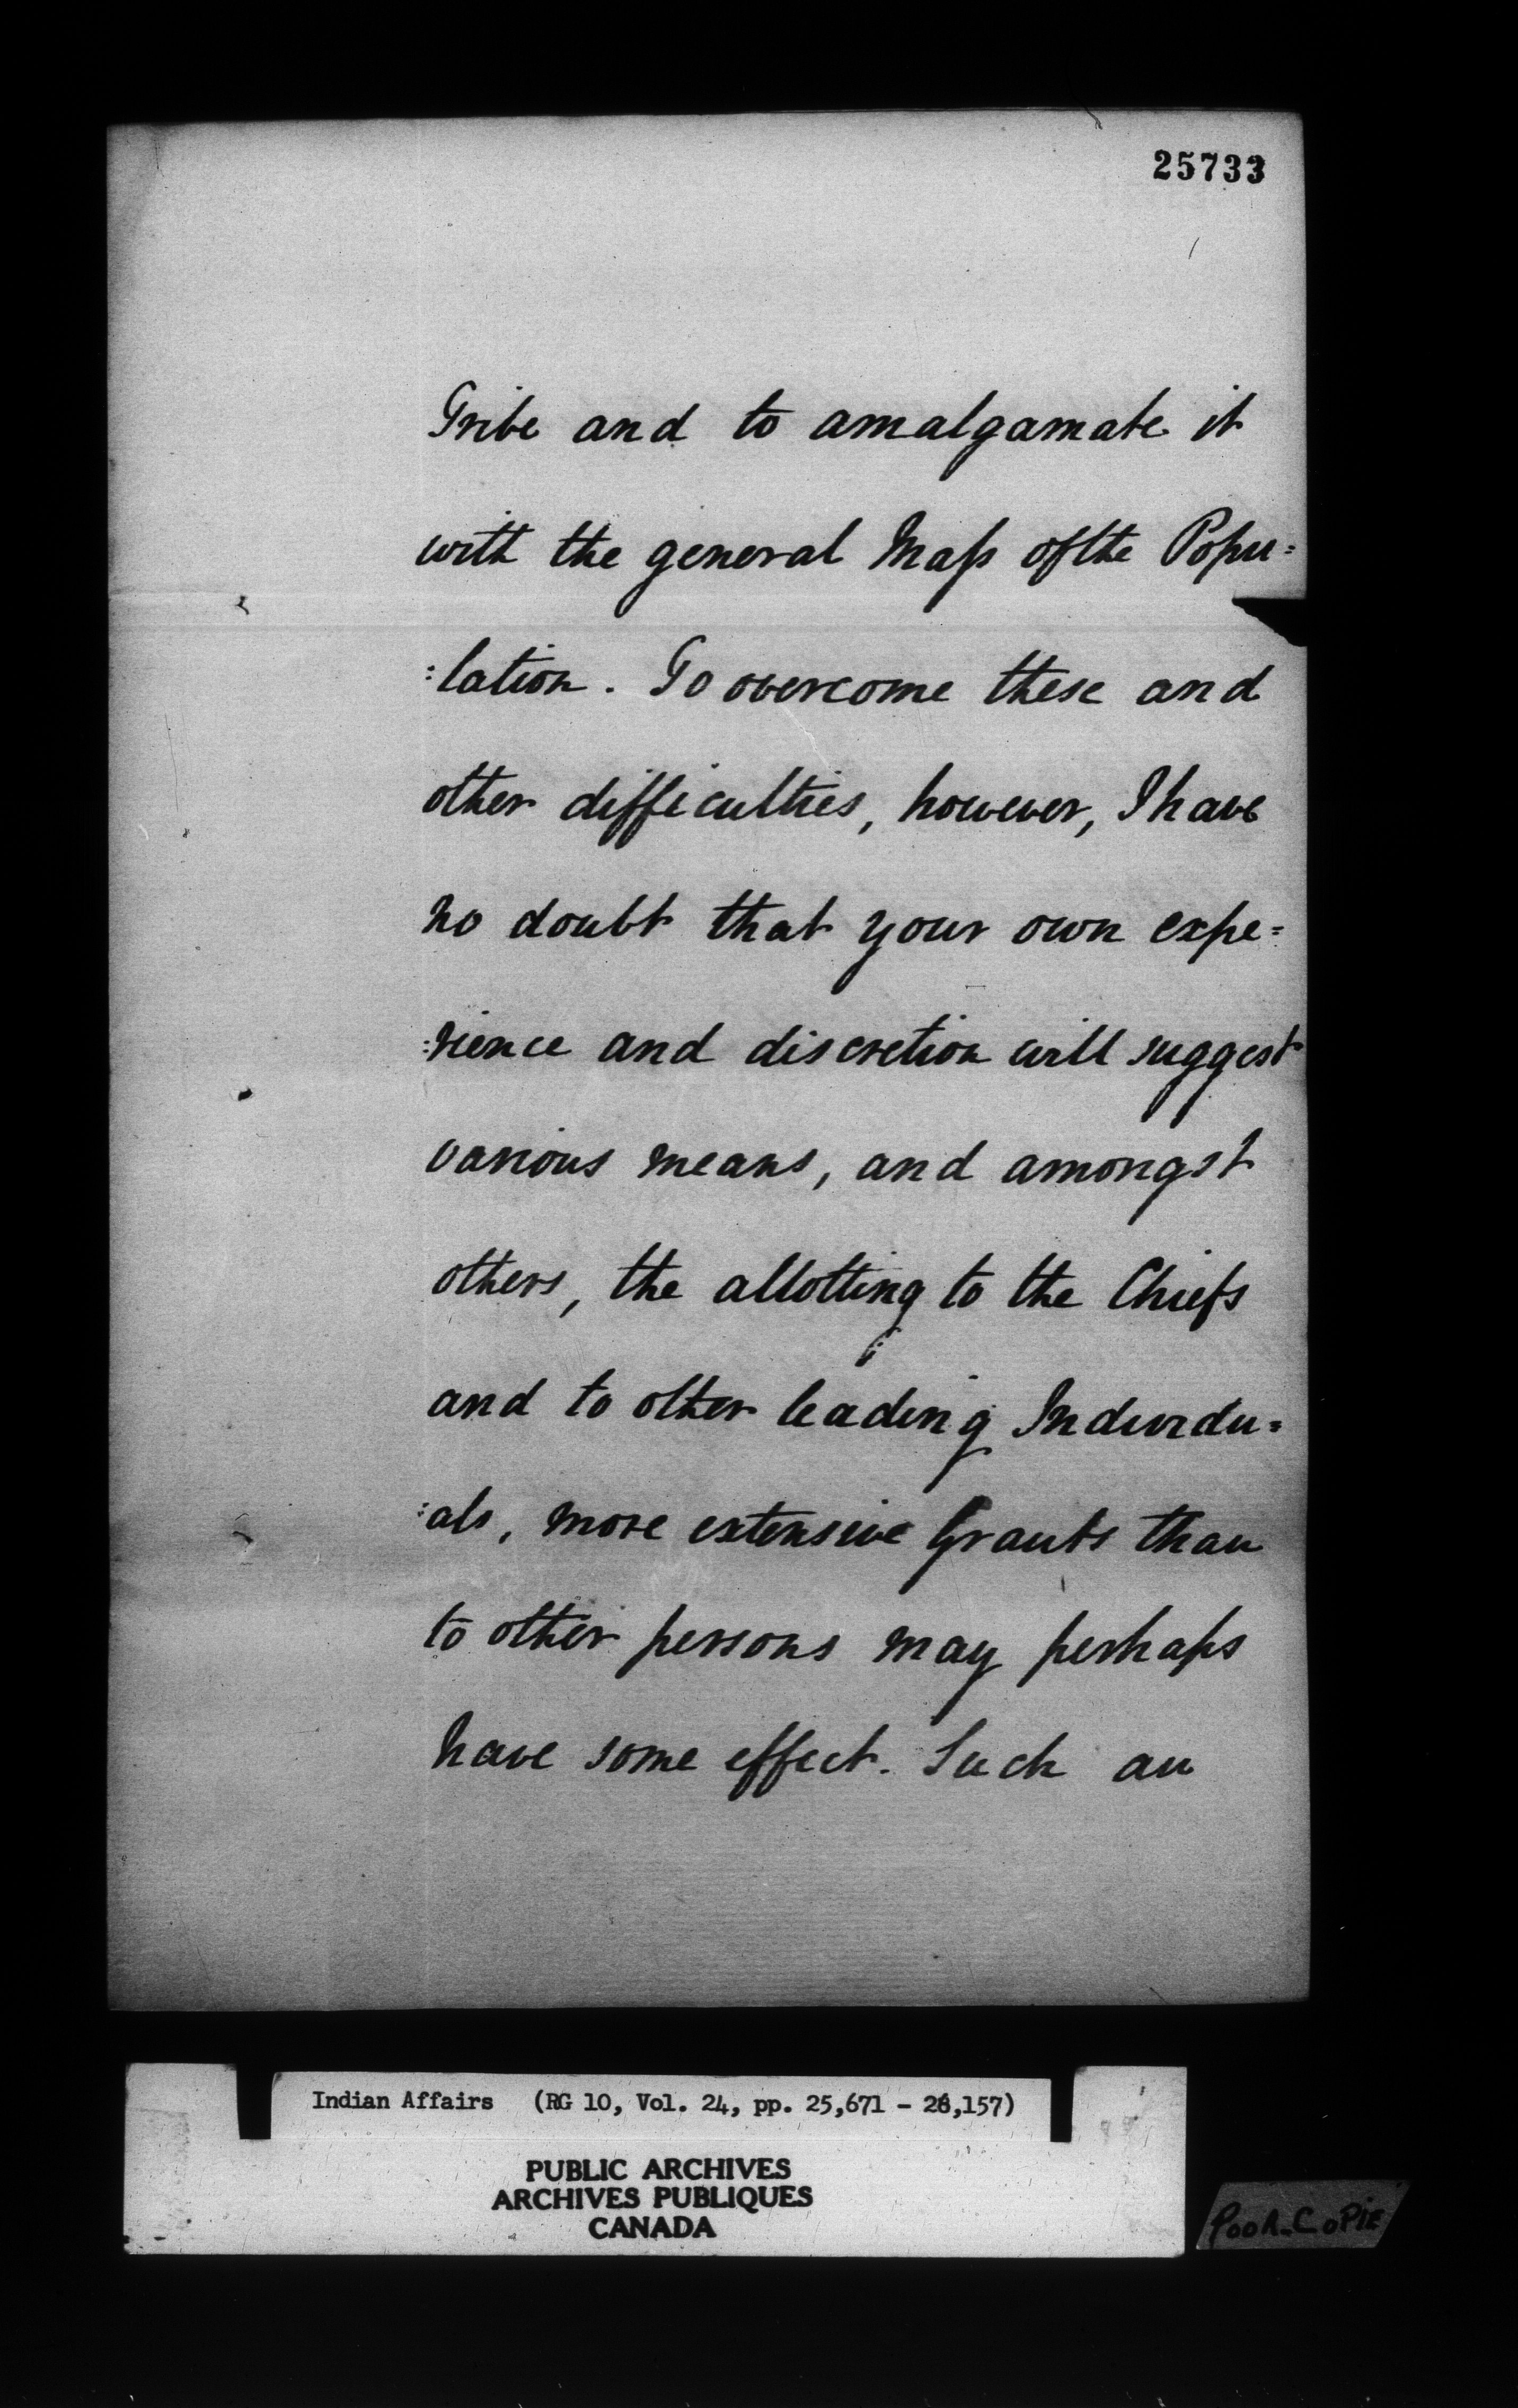 25733
Tribe and to amalgamate it
with the general Mass of the Popu=
:lation. To overcome these and
other difficulties, however, I have
no doubt that your own expe=
:rience and discretion will suggest
various means, and amongst
others, the allotting to the Chiefs
and to other leading Individu=
:als, more extensive Grants than
to other persons may perhaps
have some effect. Such an
Indian Affairs (RG 10, Vol. 24, pp. 25,671 - 26,157)
PUBLIC ARCHIVES
ARCHIVES PUBLIQUES
CANADA
POOR_COPIE